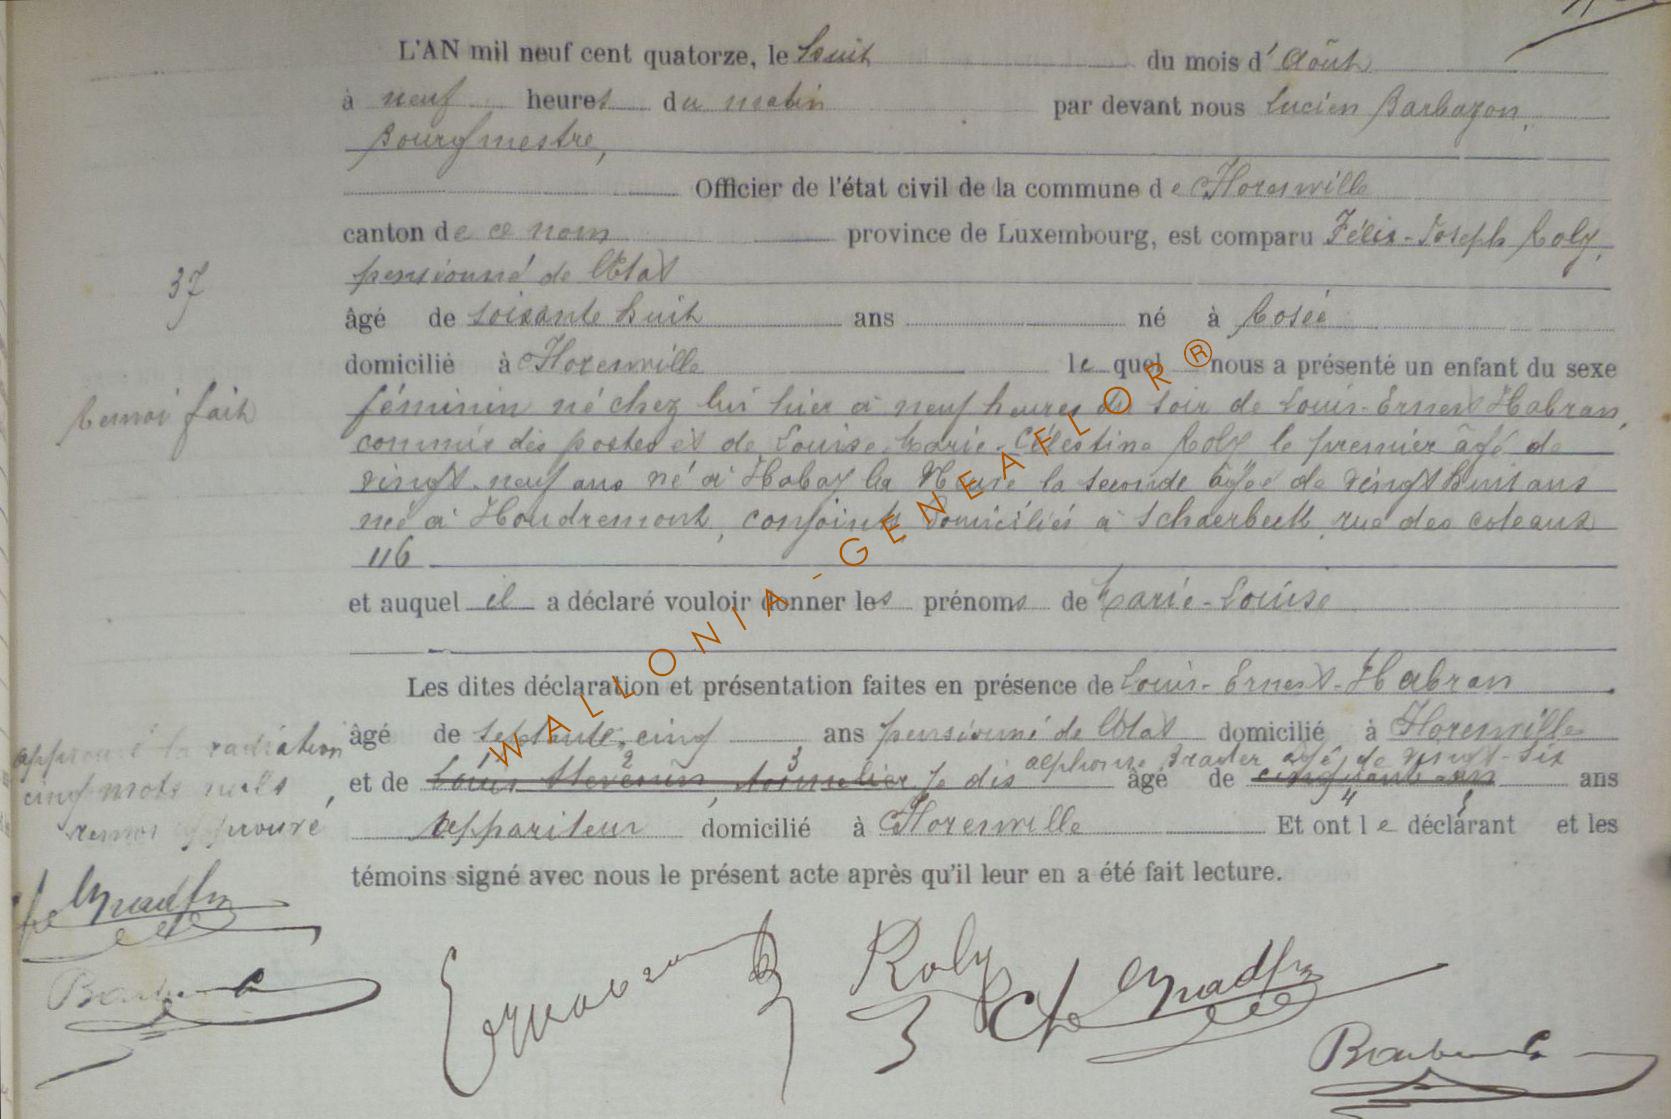 L'AN mil neuf cent quatorze, le huit du mois d'Août
à neuf heures du matin par devant nous Lucien Barbazon,
Bourgmestre,
Officier de l'état civil de la commune de Florenville
canton de ce nom province de Luxembourg, est comparu Félix-Joseph Roly,
pensionné de l'Etat
37
âgé de soixante huit ans né à Rosée
domicilié à Florenville lequel nous a présenté un enfant du sexe
Renvoi fait
féminin né chez lui hier à neuf heures du soir de Louis-Ernest Habran,
commis des postes et de Louise-Marie-Célestine Roly le premier âgé de
vingt-neuf ans né à Habay la Neuve la seconde âgée de vingt huit ans
née à Houdremont, conjoints domiciliés à Schaerbeek rue des coteaux
116
et auquel il a déclaré vouloir donner les prénoms de Marie-Louise
Les dites déclaration et présentation faites en présence de Louis-Ernest-Habran
âgé de septante-cinq ans pensionné de l'Etat domicilié à Florenville
approuvé la radiation
alphonse âgé de vingt-six
et de Louis je dis âgé de cinquante ans
cinq mots nuls,
1 2 3 4 5
appariteur domicilié à Florenville Et ont le déclarant et les
renvoi approuvé
témoins signé avec nous le présent acte après qu'il leur en a été fait lecture.
Roly
WALLONIA-GENEAFLOR®